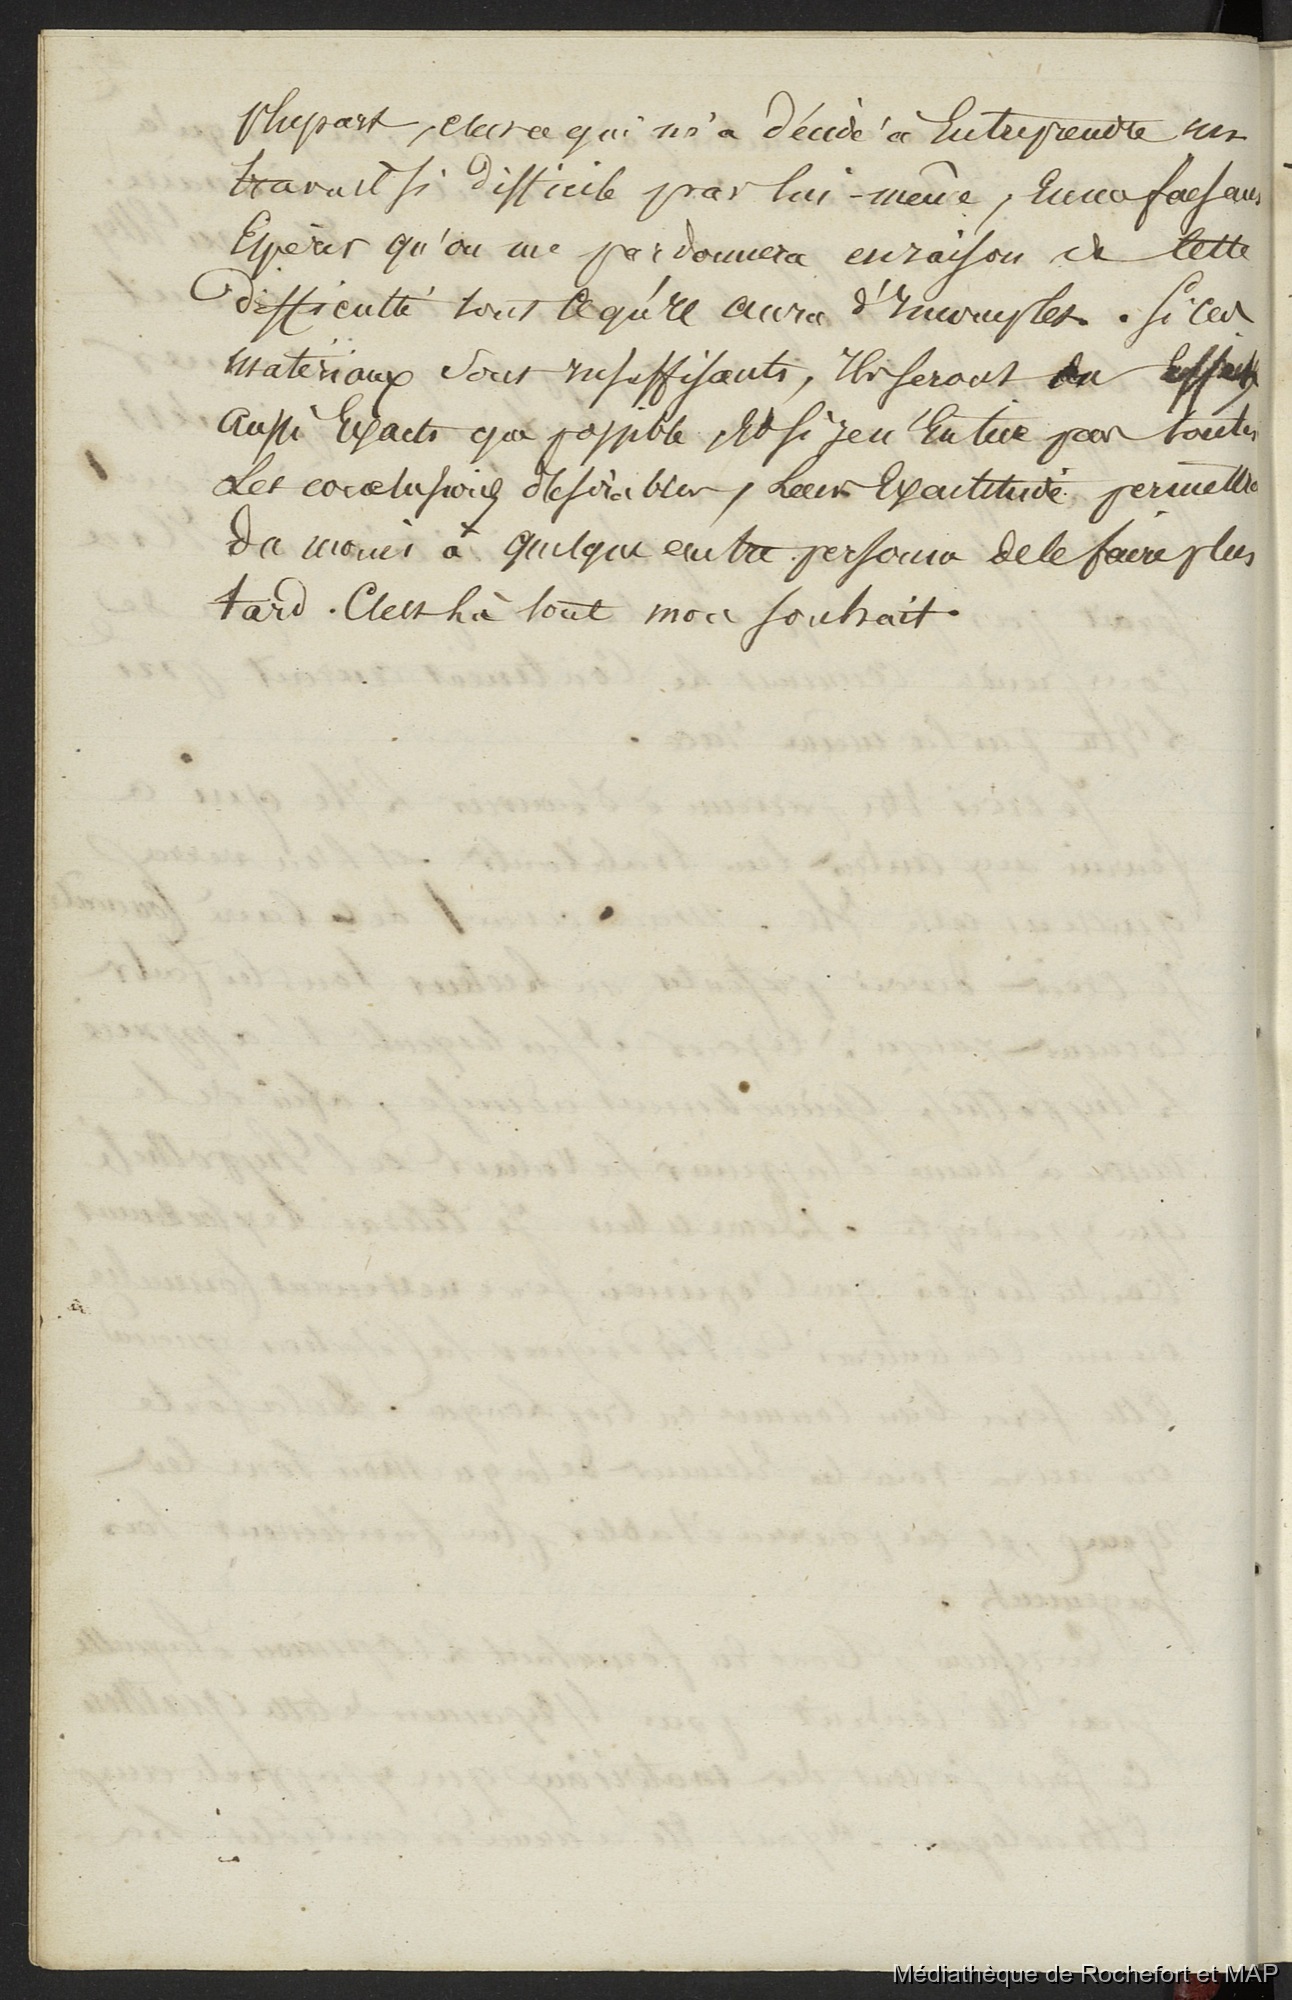 plupart, c'est ce qui m'a décidé à Entreprendre un
travail si difficile par lui-même, En me faisant
Espérer qu'on me pardonnera en raison de cette
difficulté tout ce qu'il aura d'Incomplet. Si ces
matériaux sont insuffisants, Ils seront
aussi Exacts que possible, Et si j'en tire pas toutes
Les conclusions désirables, Leur Exactitude permettra
du moins à quelque autre personne de le faire plus
tard. C'est là tout mon souhait.
Médiathèque de Rochefort et MAP